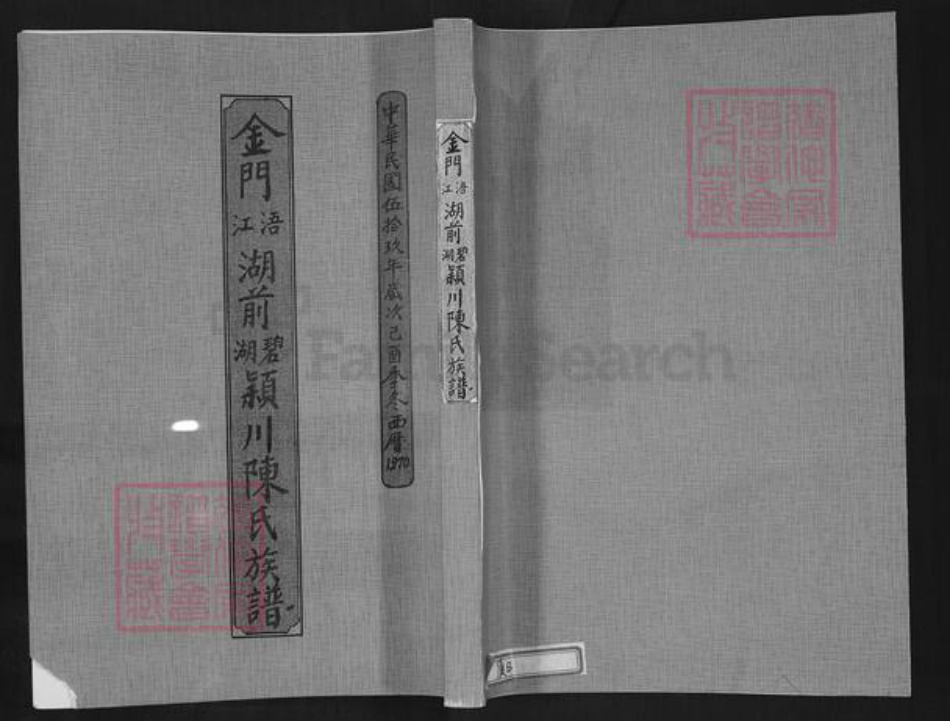 中華民國伍拾玖年歲次己酉季冬西曆1970
金門浯江湖前碧湖穎川陳氏族譜
金門浯江湖前碧湖穎川陳氏族譜
FamilySearch